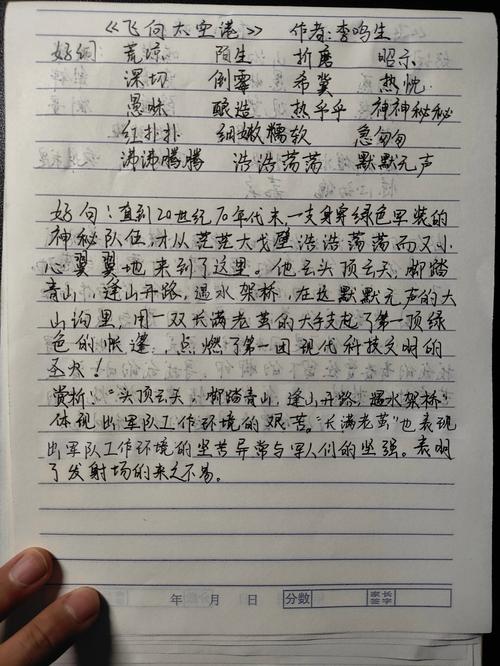 《飞向太空港》 作者:李鸣生
好词 荒凉 陌生 折磨 昭示
深切 倒霉 希冀 热忱
愚昧 酿造 热乎乎 神神秘秘
红扑扑 细嫩糯软 急匆匆
沸沸腾腾 浩浩荡荡 默默无声
好句:直到20世纪70年代末,一支身穿绿色军装的
神秘队伍,才从茫茫大戈壁浩浩荡荡而又小
心翼翼地来到了这里。他们头顶云天,脚踏
青山,逢山开路,遇水架桥,在这默默无声的大
山沟里,用一双长满老茧的大手支起了第一顶绿
色的帐篷,点燃了第一团现代科技文明的
圣火!
赏析:“头顶云天,脚踏青山,逢山开路,遇水架桥”
体现出军队工作环境的艰苦。“长满老茧”也表现
出军队工作环境的坚苦异常与军人们的坚强。表明
了发射场的来之不易。
年 月 日 分数 家长签字